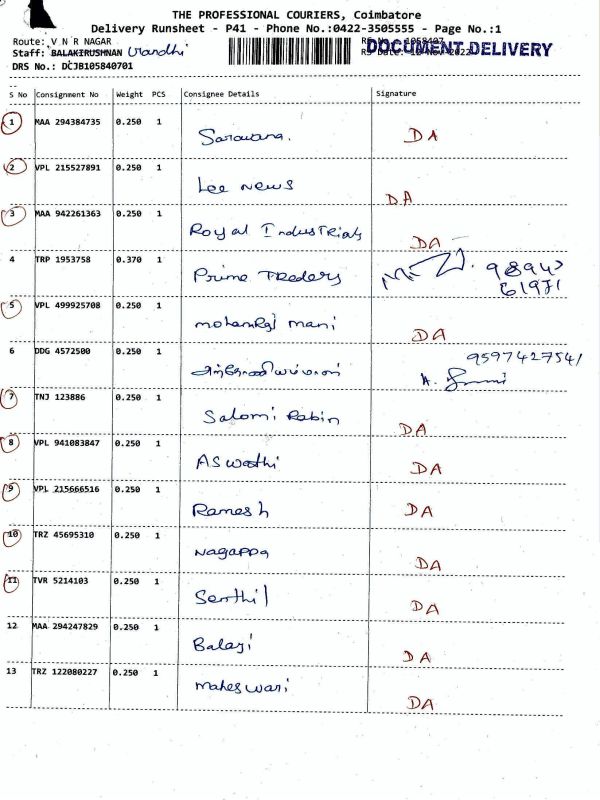 THE PROFESSIONAL COURIERS, Coimbatore
Delivery Runsheet - P41 - Phone No.:0422-3505555 - Page No.:1
Route: V N R NAGAR
DOCUMENT DELIVERY
Staff: BALAKIRUSHNAN
DRS No.: DCJB105840701
S No Consignment No Weight PCS Consignee Details Signature
1 MAA 294384735 0.250 1 Saravana. DA
2 VPL 215527891 0.250 1 Lee News DA
3 MAA 942261363 0.250 1 Royal Industrials DA
4 TRP 1953758 0.370 1 Prime Treders 98943
61971
5 VPL 499925708 0.250 1 mohanraj mani DA
6 DDG 4572500 0.250 1 9597427541
7 TNJ 123886 0.250 1 Salomi Rabin DA
8 VPL 941083847 0.250 1 Aswathi DA
9 VPL 215666516 0.250 1 Ramesh DA
10 TRZ 45695310 0.250 1 Nagappa DA
11 TVR 5214103 0.250 1 Senthil DA
12 MAA 294247829 0.250 1 Balaji DA
13 TRZ 122080227 0.250 1 maheswari DA